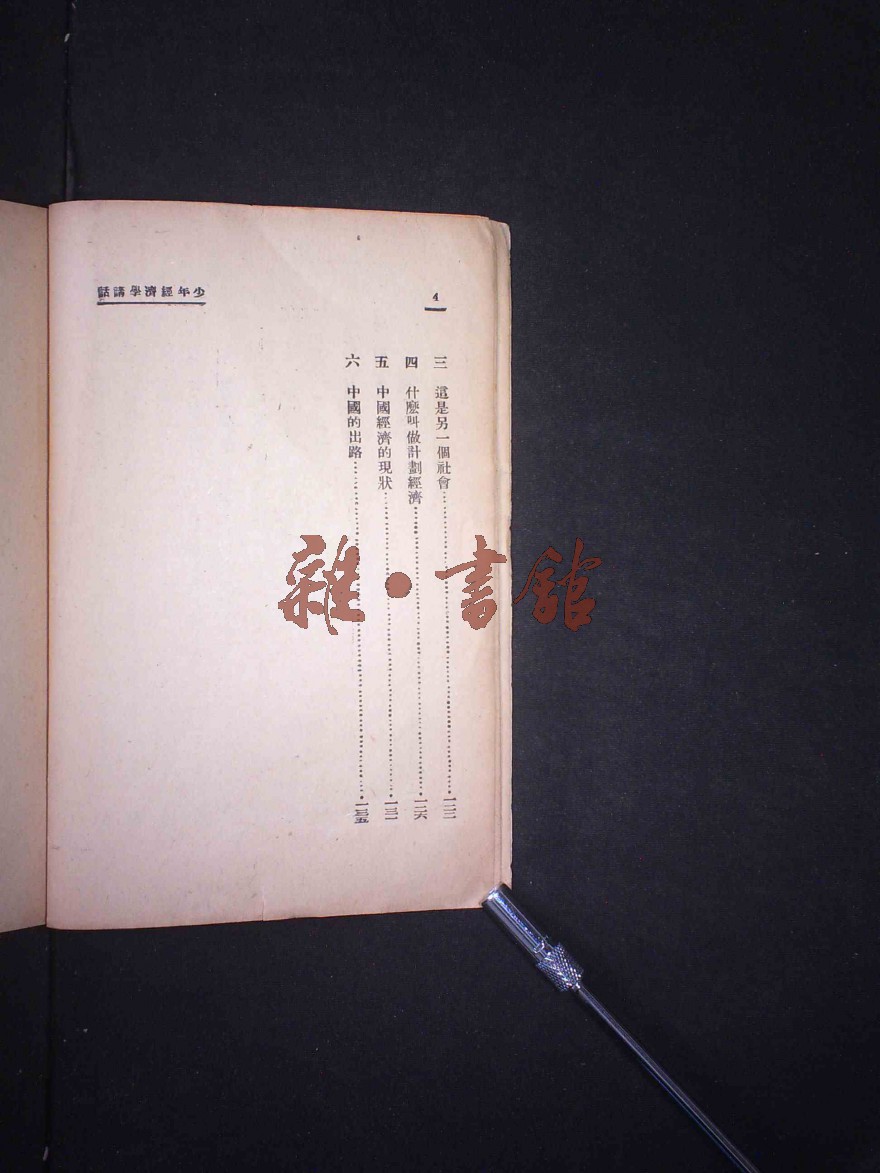 少年經濟學講話
4
三 這是另一個社會
四 什麼叫做計劃經濟……一二六
五 中國經濟的現狀……一三一
六 中國的出路……一三五
雜·書館